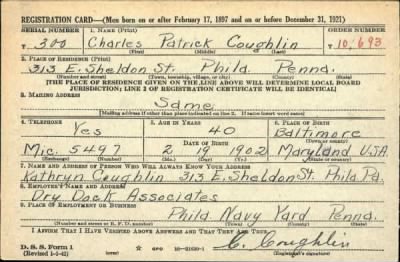 REGISTRATION CARD—(Men born on or after February 17, 1897 and on or before December 31, 1921)
SERIAL NUMBER 1. NAME (Print) ORDER NUMBER
T 300 Charles Patrick Coughlin T 10,693
(First) (Middle) (Last)
2. PLACE OF RESIDENCE (Print)
313 E. Sheldon St. Phila. Penna.
(Number and street) (Town, township, village, or city) (County) (State)
[THE PLACE OF RESIDENCE GIVEN ON THE LINE ABOVE WILL DETERMINE LOCAL BOARD
JURISDICTION; LINE 2 OF REGISTRATION CERTIFICATE WILL BE IDENTICAL]
3. MAILING ADDRESS
Same
[Mailing address if other than place indicated on line 2. If same insert word same]
4. TELEPHONE 5. AGE IN YEARS 6. PLACE OF BIRTH
Yes 40 Baltimore
DATE OF BIRTH (Town or county)
Mic. 5497 2 19 1902 Maryland USA
(Exchange) (Number) (Mo.) (Day) (Yr.) (State or country)
7. NAME AND ADDRESS OF PERSON WHO WILL ALWAYS KNOW YOUR ADDRESS
Kathryn Coughlin 313 E. Sheldon St. Phila Pa.
8. EMPLOYER'S NAME AND ADDRESS
Dry Dock Associates
9. PLACE OF EMPLOYMENT OR BUSINESS
Phila Navy Yard Penna.
(Number and street or R. F. D. number) (Town) (County) (State)
I AFFIRM THAT I HAVE VERIFIED ABOVE ANSWERS AND THAT THEY ARE TRUE.
D. S. S. Form 1
(Revised 1-1-42) GPO 16—21630-1 C. Coughlin
(Registrant's signature)